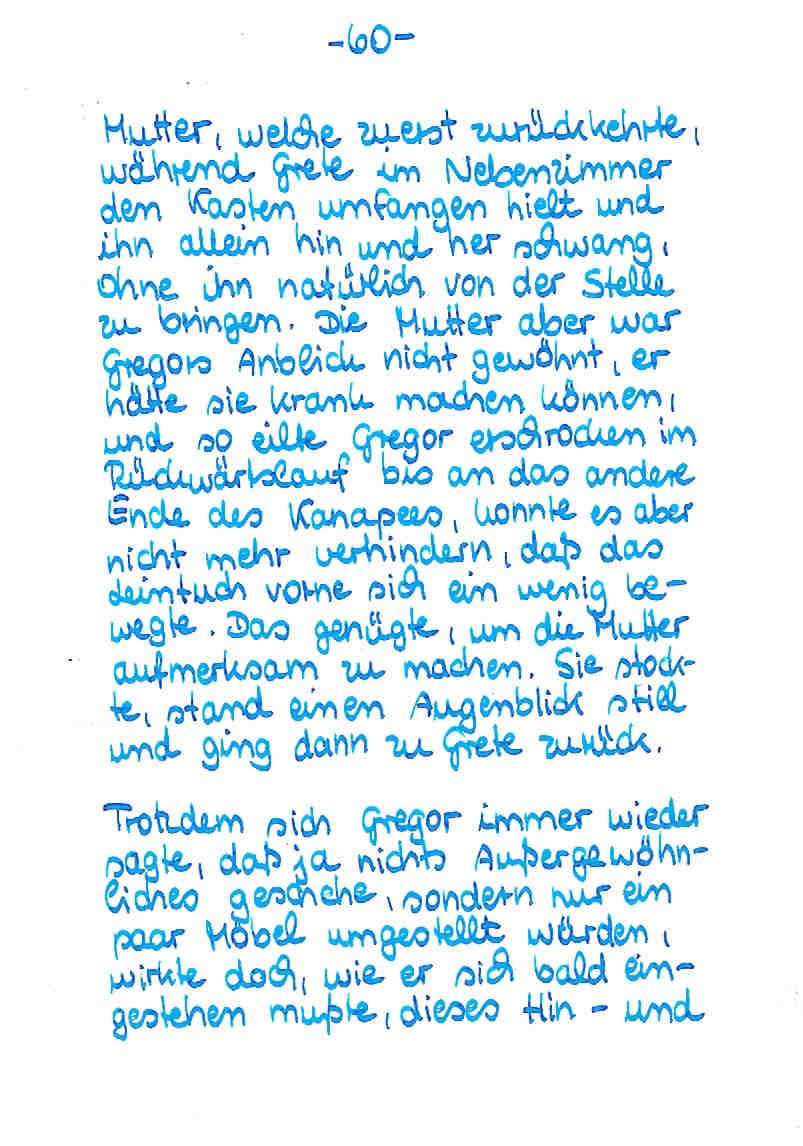 -60-
Mutter, welche zuerst zurückkehrte,
während Grete im Nebenzimmer
den Kasten umfangen hielt und
ihn allein hin und her schwang,
ohne ihn natürlich von der Stelle
zu bringen. Die Mutter aber war
Gregors Anblick nicht gewöhnt, er
hätte sie krank machen können,
und so eilte Gregor erschrocken im
Rückwärtslauf bis an das andere
Ende des Kanapees, konnte es aber
nicht mehr verhindern, daß das
Leintuch vorne sich ein wenig be-
wegte. Das genügte, um die Mutter
aufmerksam zu machen. Sie stock-
te, stand einen Augenblick still
und ging dann zu Grete zurück.
Trotzdem sich Gregor immer wieder
sagte, daß ja nichts Außergewöhn-
liches geschehe, sondern nur ein
paar Möbel umgestellt würden,
wirkte doch, wie er sich bald ein-
gestehen mußte, dieses Hin- und